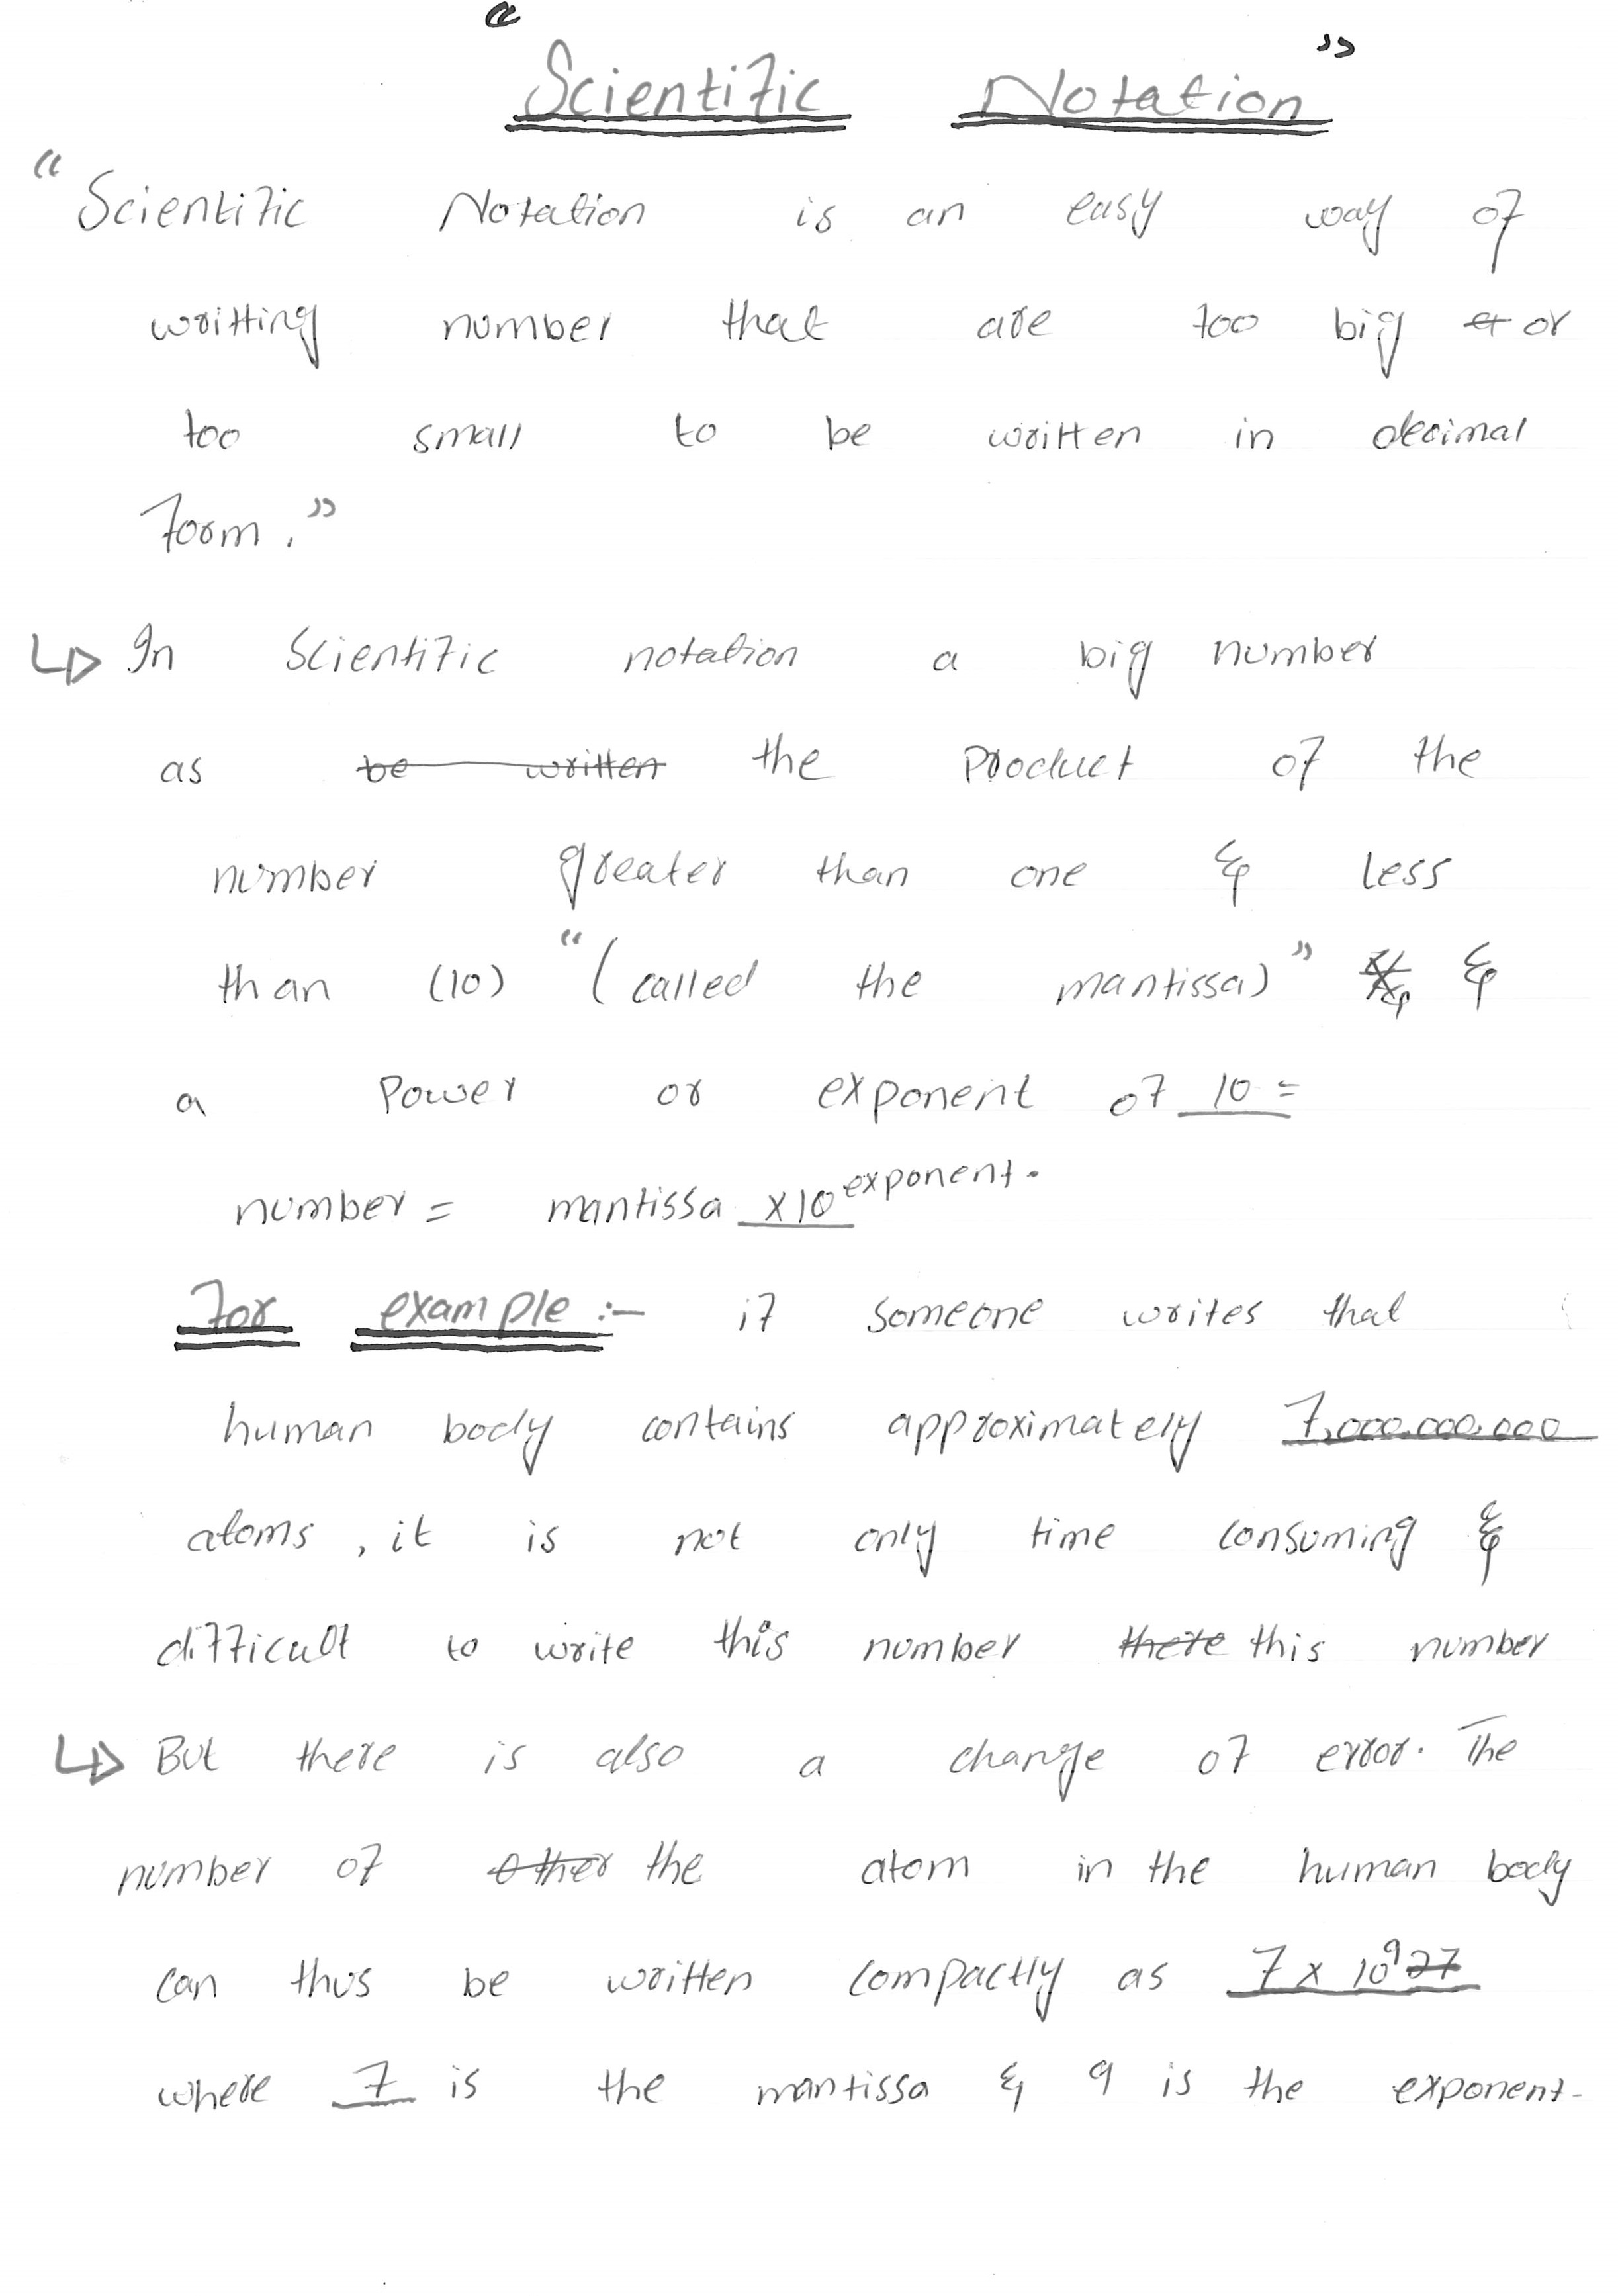 “Scientific Notation”
“Scientific Notation is an easy way of
writting number that are too big or or
too small to be written in decimal
Form.”
In Scientific notation a big number
as be written the Product of the
number greater than one & less
than (10) “(called the mantissa)” & &
a Power or exponent of 10 =
number = mantissa x10^exponent.
For example :- if someone writes that
human body contains approximately 7,000,000,000
atoms, it is not only time consuming &
difficult to write this number there this number
But there is also a change of error. The
number of other the atom in the human body
can thus be written compactly as 7 x 10^9 27
where 7 is the mantissa & 9 is the exponent-